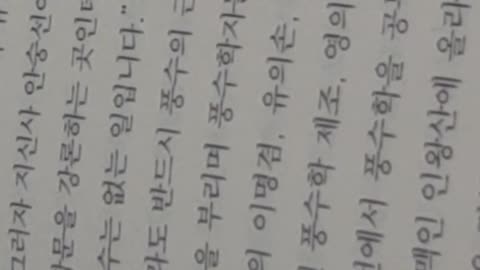 그러자 지신사 안숭선이
문을 강론하는 곳인데
수는 없는 일입니다."
라도 반드시 풍수의
을 부리며 풍수학자
의 이명겸, 유의손,
풍수학 제조, 영의
전에서 풍수학을
맥인 인왕산에 올라